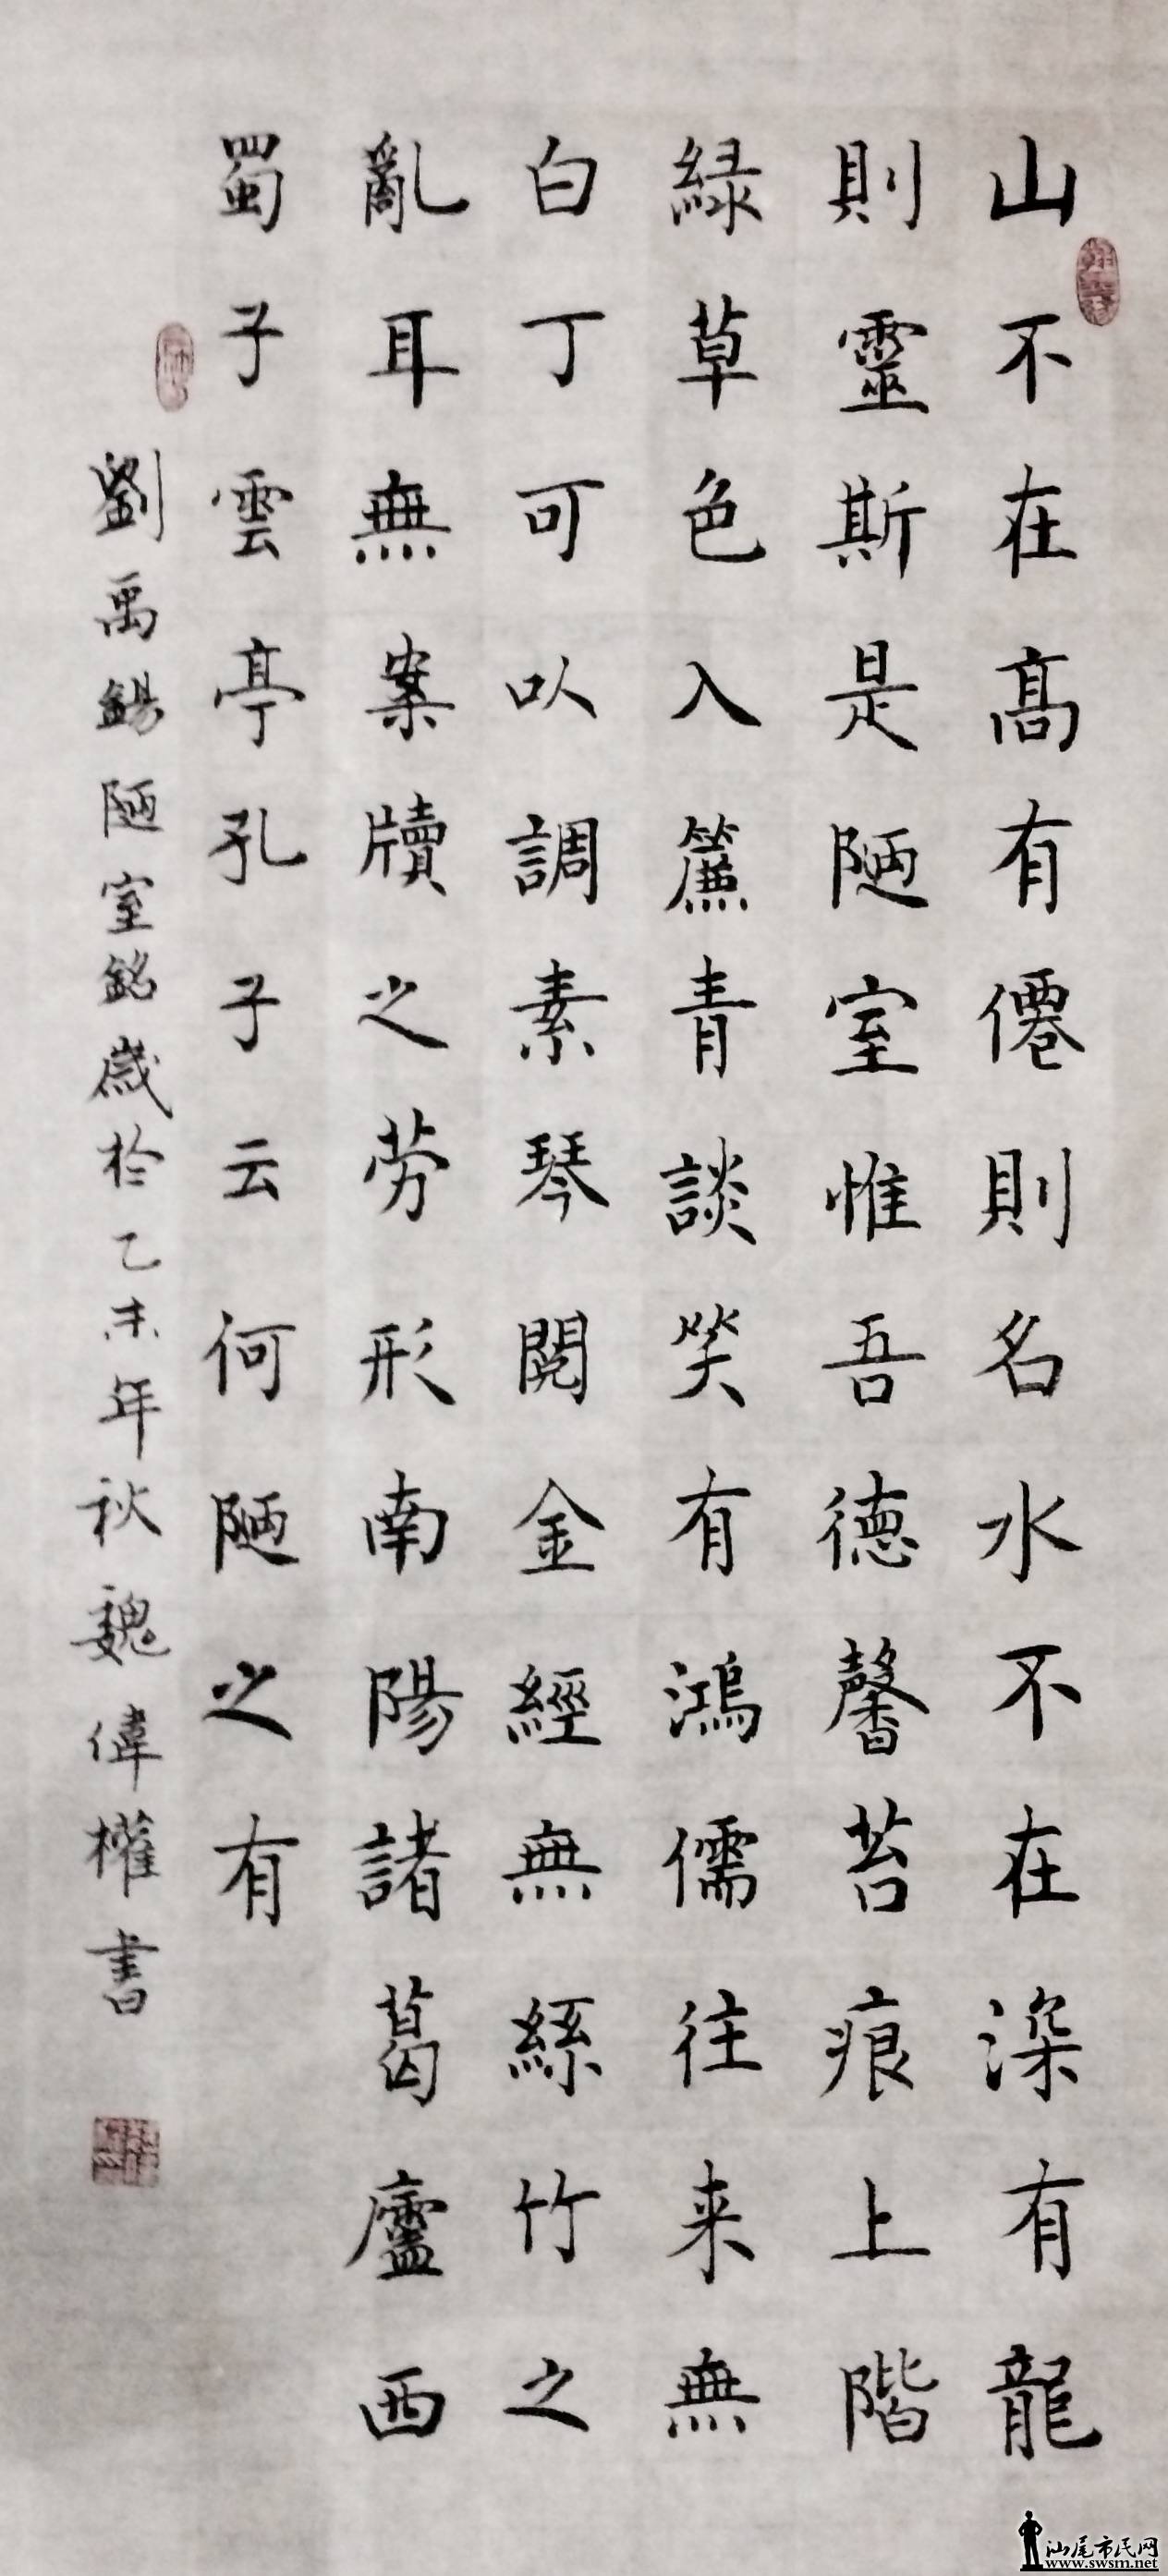 山不在高有僊則名水不在深有龍
則靈斯是陋室惟吾德馨苔痕上階
緑草色入簾青談笑有鴻儒往来無
白丁可以調素琴閱金經無絲竹之
亂耳無案牘之劳形南陽諸葛廬西
蜀子雲亭孔子云何陋之有
劉禹錫陋室銘歲於乙未年秋魏偉權書
汕尾市民网
www.swsm.net